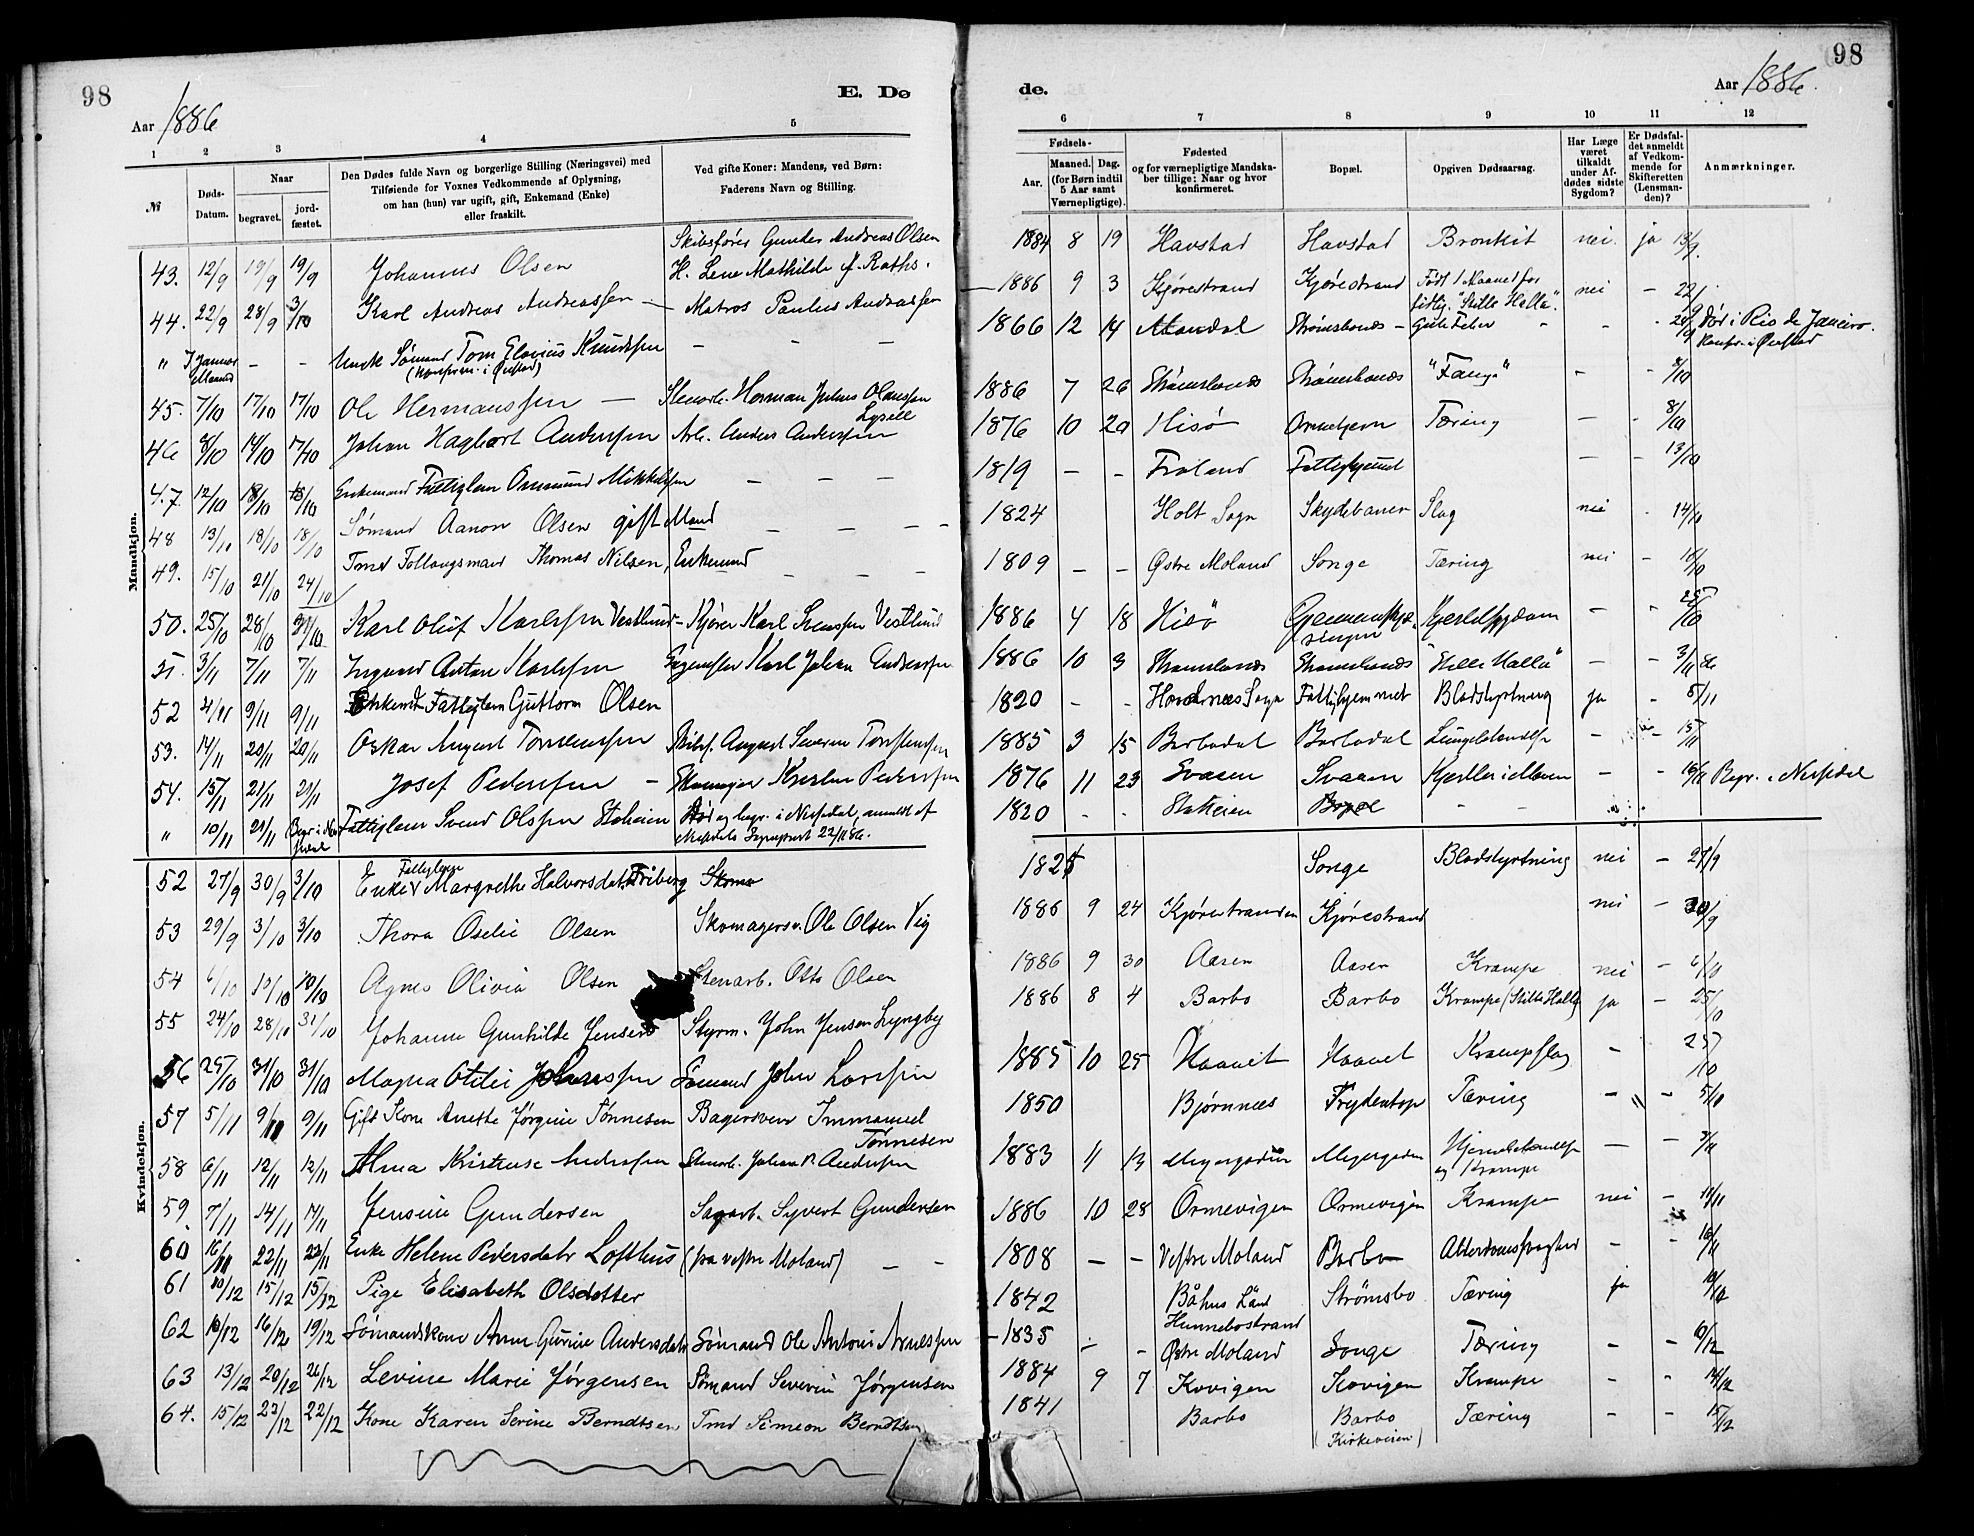 98
98
Aar 1886
E. Dø
de.
Aar 1886.
1 2 3 4 5
6 7 8 9 10 11 12
№
Døds-Datum.
Naar
begravet.
jord-fæstet.
Den Dødes fulde Navn og borgerlige Stilling (Næringsvei) med
Tilføiende for Voxnes Vedkommende af Oplysning,
om han (hun) var ugift, gift, Enkemand (Enke)
eller fraskilt.
Ved gifte Koner: Mandens, ved Børn:
Faderens Navn og Stilling.
Fødsels-
Aar.
Maaned. Dag.
(for Børn indtil
5 Aar samt
Værnepligtige).
Fødested
og for værnepligtige Mandska-
ber tillige: Naar og hvor
konfirmeret.
Bopæl.
Opgiven Dødsaarsag.
Har Læge
været
tilkaldt
under Af-
dødes sidste
Sygdom?
Er Dødsfal-
det anmeldt
af Vedkom-
mende for
Skifteretten
(Lensman-
den)?
Anmærkninger.
Mandkjøn.
43. 12/9 19/9 19/9 Johannes Olsen Skibsfører Gunder Andreas Olsen H. Lene Mathilde f. Raths. 1884 8 19 Havstad Havstad Bronkit nei. ja 13/9.
44. 22/9 28/9 3/10 Karl Andreas Andreassen — Matros Paulus Andreassen 1886 9 3 Kjørestrand Kjørestrand Født 1 Maaned for tidlig. "Stille Halla". nei - 22/9
" I Januar Maaned - - Ungk Sømand Tom Elovius Knudssen (Konfirm. i Øiestad) - - - 1866 12 14 Mandal Strømsbonæs - Gule Feber - - - 24/9 Død i Rio de Janeiro. Konfr. i Øiestad
45. 7/10 17/10 17/10 Ole Hermanssen — Stenarb. Herman Julius Olaussen 1886 7 26 Strømsbonæs Strømsbonæs "Fang" - - 8/10
46 8/10 14/10 17/10 Johan Hagbart Anderssen Arb. Anders Anderssen 1876 10 20 Hisø Tæring — - 8/10
47 12/10 18/10 18/10 Enkemand Fattiglem Ommund Mikkelssen — — — 1819 — - Froland Fattighjemmet — - 13/10
48 13/10 18/10 18/10 Sømand Aanon Olsen gift Mand — — — - 1824 Holt Sogn Skydebanen Slag nei - 14/10
49. 15/10 21/10 24/10 Tmd Thomas Nilsen, Enkemand - - - 1809 — — Østre Moland Songe Tæring nei - 16/10
50. 25/10 28/10 31/10 Karl Oluf Karlssen Vestlund - Kjører Karl Svenssen Vestlund 1886 4 18 Hisø Hjertesygdom - - 25/10
51. 3/11 7/11 7/11 Ingvard Anton Karlssen Karl Johan Anderssen 1886 10 3 Strømsbonæs Strømsbonæs "Stille Halla" — - 3/11 86
52 4/11 9/11 9/11 Enkemd Fattiglem Guttorm Olsen 1820 - - Hovdenæs Sogn Fattighjemmet Blodstyrtning ja - 5/11
53. 14/11 20/11 20/11 Oskar August Torstenssen Skibsf. August Severin Torstenssen 1885 3 15 Barbodal Barbodal Lungebetændelse - - 15/11
54. 15/11 21/11 21/11 Josef Pederssen — Skomager Kristen Pederssen 1876 11 23 Svasen Svasen — - 16/11 Begr. i Nersedal
" 10/11 21/11 Fattiglem Svend Olssen Stoheien Død og begr. i Nersedal, anmeldt af 22/11 86. 1820 - - Stoheien - -
Kvindekjøn.
52 27/9 30/9 3/10 Enke Fattiglem Margrethe Halvorsdatr Friberg 1825 Songe Blodstyrtning nei — 27/9
53 29/9 3/10 3/10 Thora Oselie Olsen Skomagersv. Ole Olsen Vig 1886 9 24 Kjørestranden Kjørestrand nei — 30/9
54 6/10 10/10 10/10 Agnes Olivia Olsen Stenarb. Otto Olsen 1886 9 30 Aasen Aasen Krampe nei — 6/10
55 24/10 28/10 31/10 Johanne Gunhilde Jensen Styrm. John Jensen Lyngby 1886 8 4 Barbo Barbo Krampe (Stille Halla) ja — 25/10
56 25/10 31/10 31/10 Magna Otilie Johnssen Sømand John Larssen 1885 10 25 Haavet Haavet Krampslag - 25/10
57 5/11 9/11 9/11 Gift Kone Anette Jørgine Tønnesen Bagersvend Immanuel Tønnesen 1850 Bjørnnæs Frydentop Tæring - - 5/10
58 6/11 12/11 12/11 Alma Kristense Anderssen Stenarb. Johan P. Anderssen 1883 11 13 Meyergaden Meyergaden Hjernebetændelse og Krampe — -
59. 7/11 14/11 14/11 Jensine Gundersen Sagarb. Syvert Gundersen 1886 10 28 Ormevigen Ormevigen Krampe nei —
60 16/11 22/11 22/11 Enke Helene Pedersdatr Lofthus (fra vestre Moland) — — 1808 — — Vestre Moland Barbo Alderdomssvaghed - - 16/11
61 10/12 15/12 15/12 Pige Elisabeth Olsdotter 1842 Båhus Län Hunnebostrand Strømsbo Tæring ja 10/12
62 10/12 16/12 19/12 Sømandskone Anne Gurine Andersdatr Sømand Ole Antoni Arnessen 1835 - - Østre Moland Songe Tæring — - 10/12
63 13/12 20/12 26/12 Levine Marie Jørgensen Sømand Severin Jørgensen 1884 9 7 Kovigen Kovigen Krampe - - 14/12
64. 15/12 23/12 22/12 Kone Karen Serine Berndtsen Tmd Simeon Berndtsen 1841 Barbo Barbo (Kirkeveien) Tæring - - 15/12